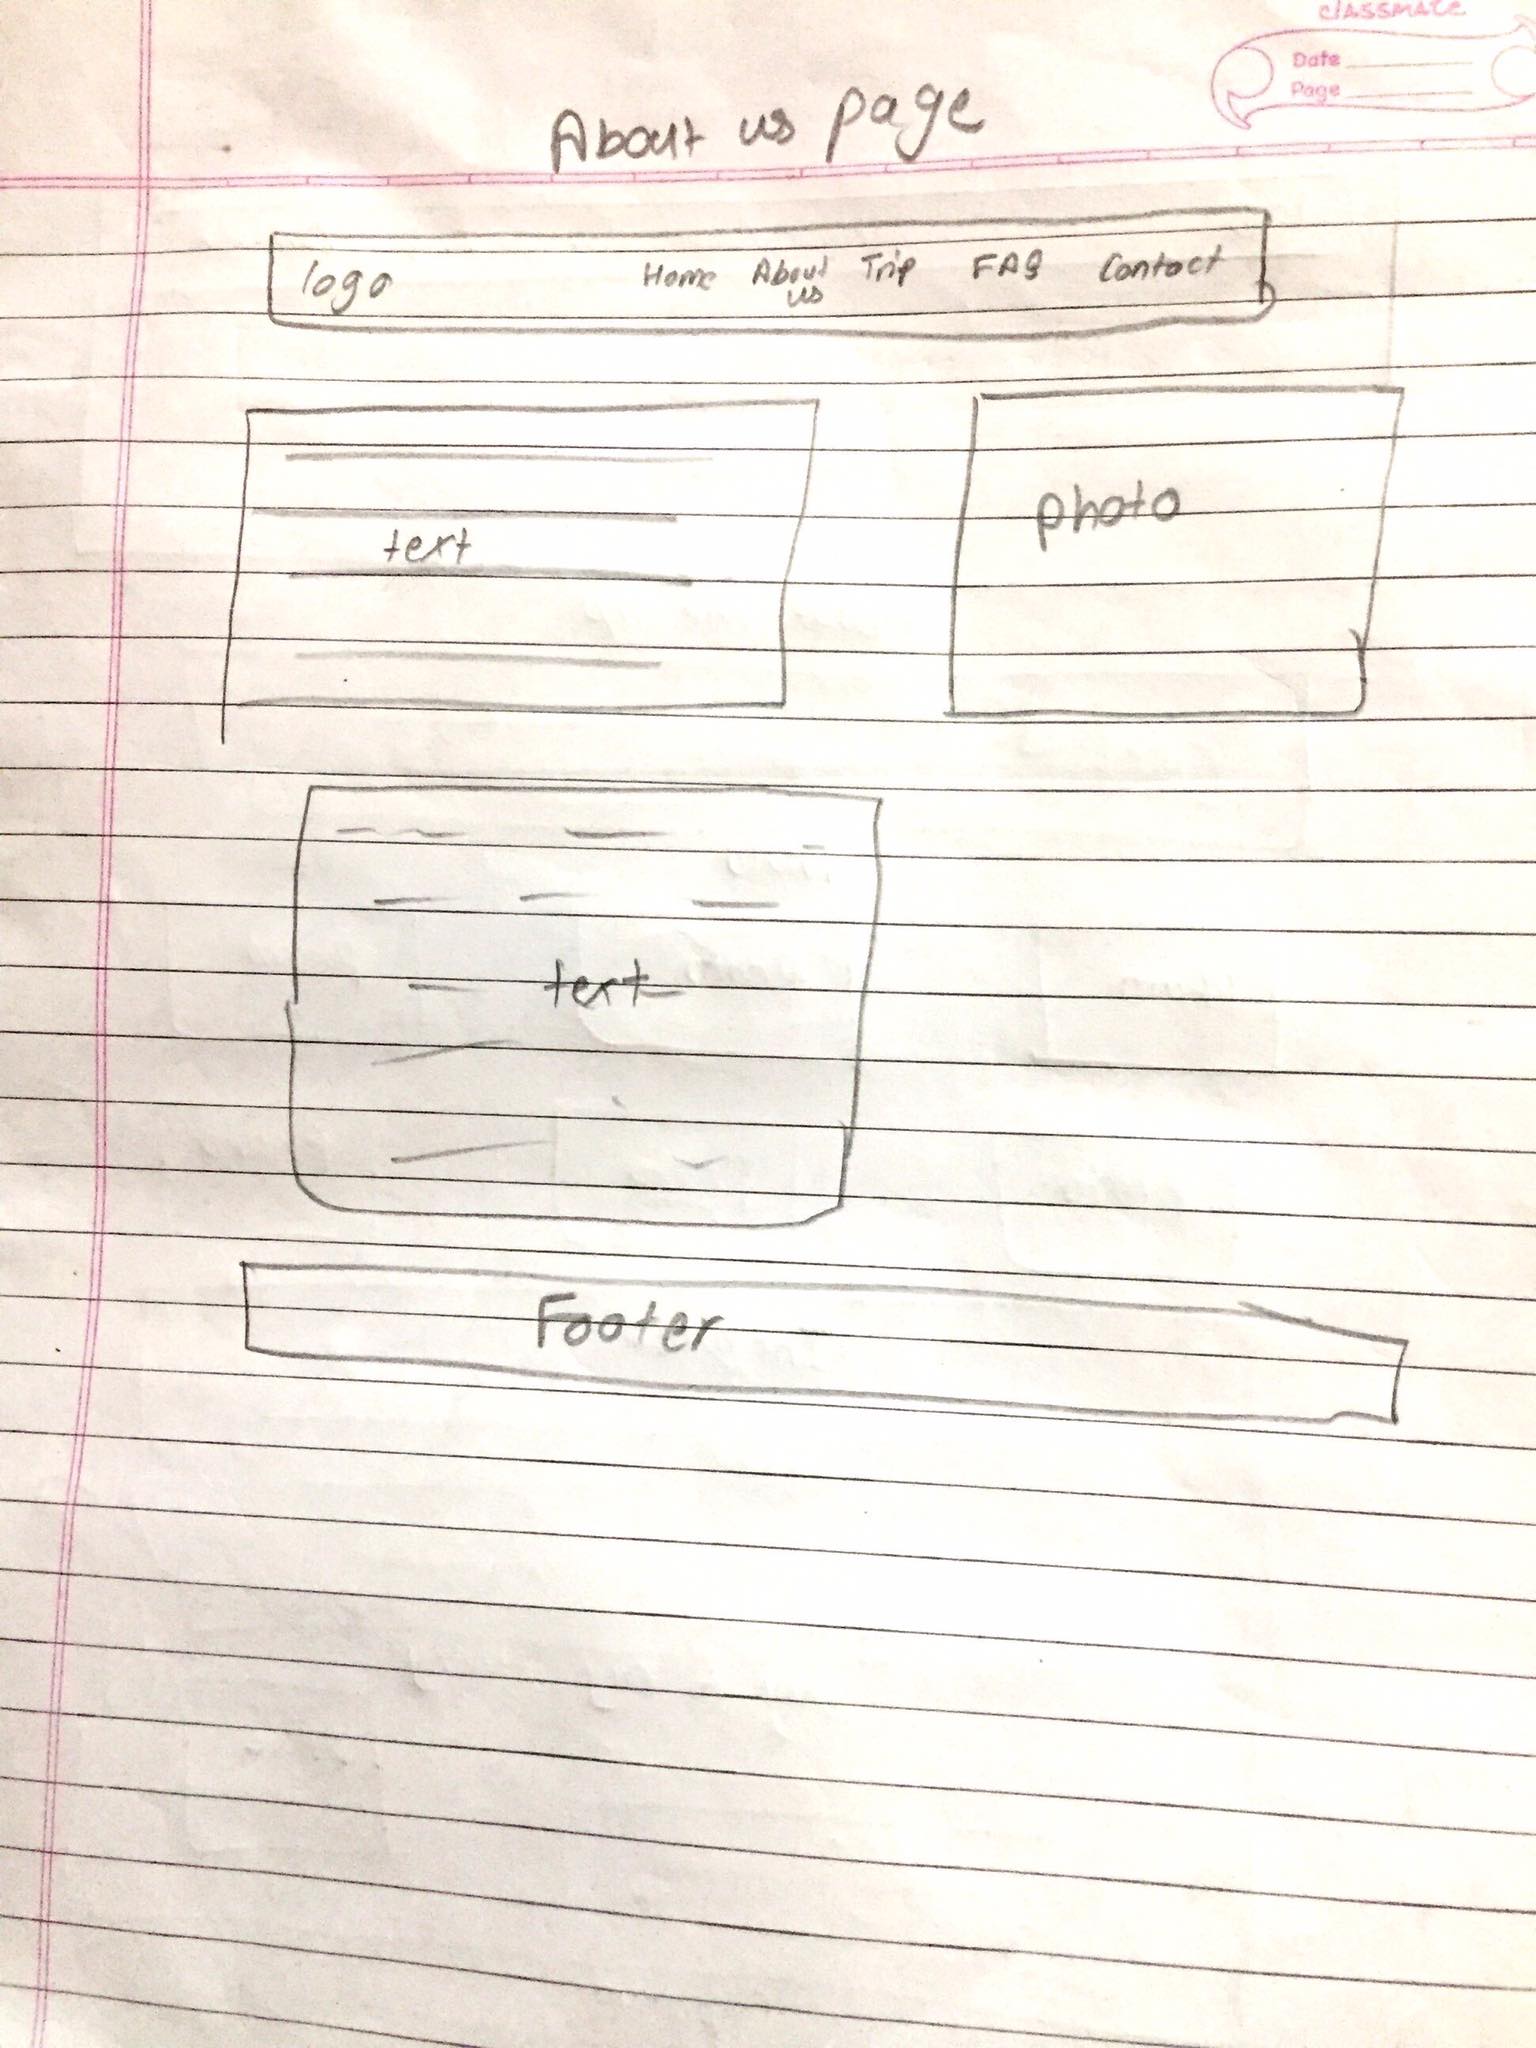 classmate
Date
Page
About us page
logo Home About us Trip FAQ Contact
text
photo
text
Footer